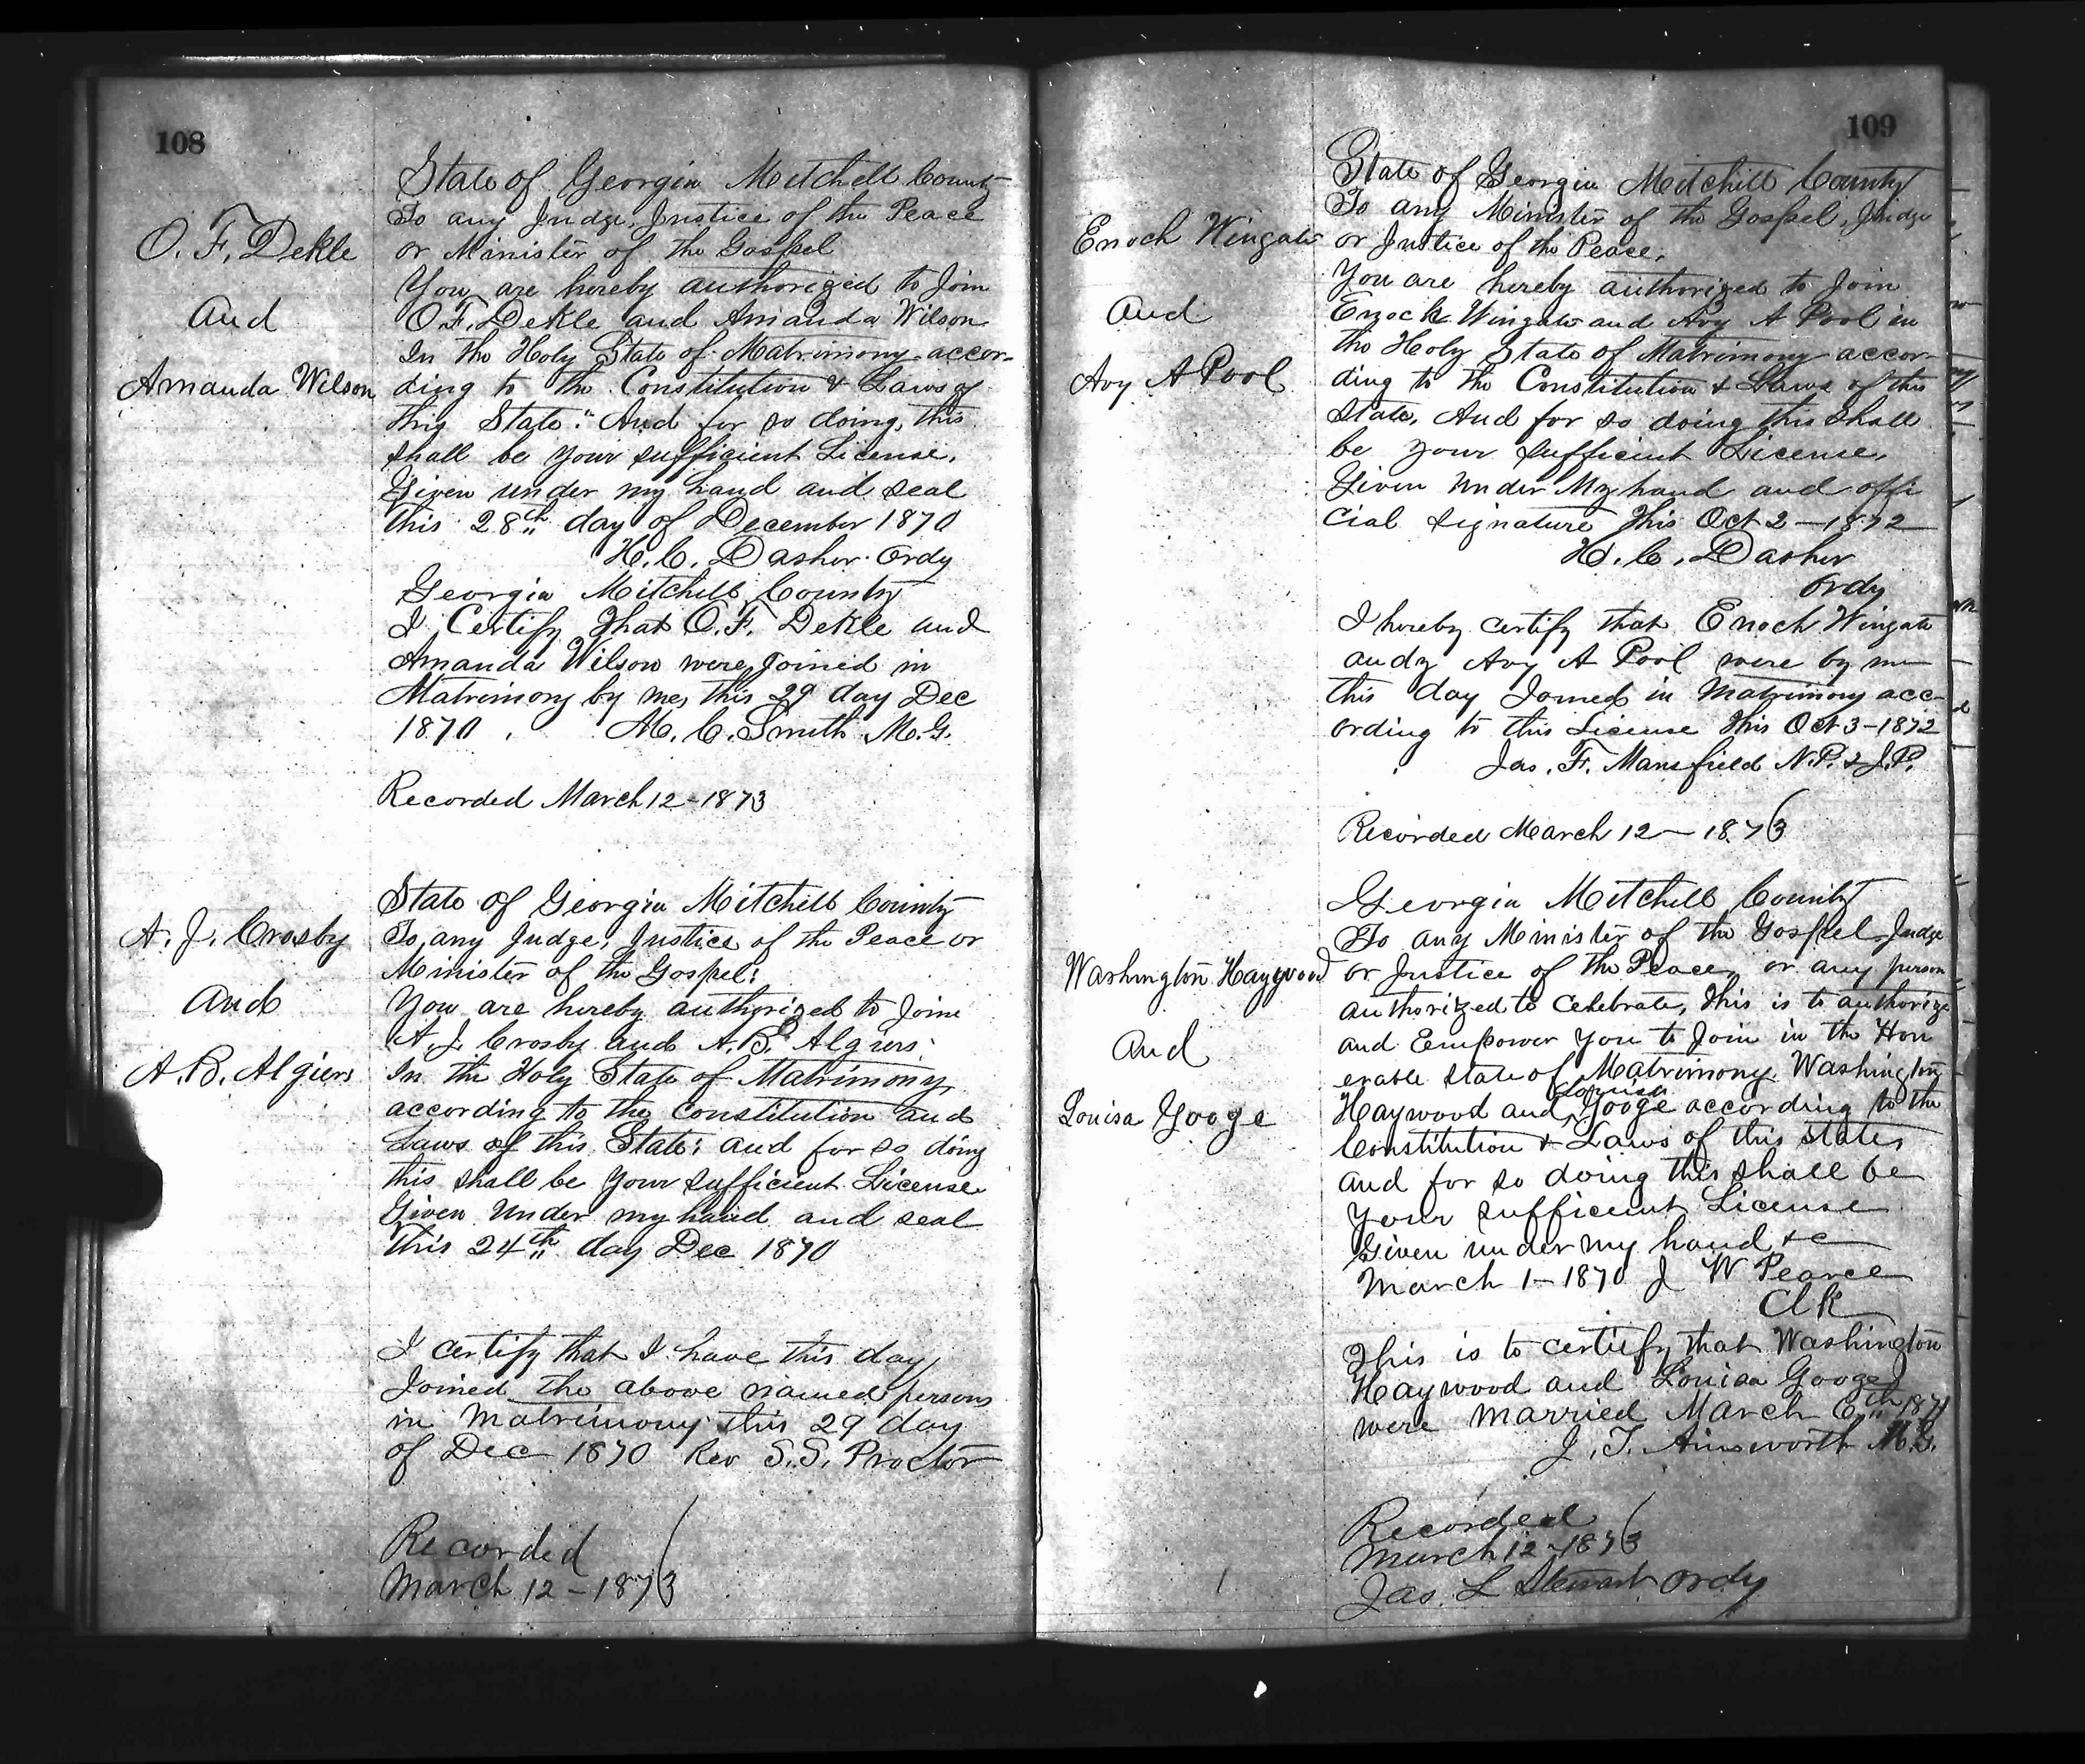 108
O. F. Dekle
And
Amanda Wilson
State of Georgia Mitchell County
To any Judge, Justice of the Peace
or Minister of the Gospel
You are hereby authorized to Join
O. F. Dekle and Amanda Wilson
In the Holy State of Matrimony accor-
ding to the Constitution & Laws of
this State: And for so doing, this
shall be your sufficient License.
Given under my hand and seal
this 28th day of December 1870
H. C. Dasher Ordy
Georgia Mitchell County
I Certify That O. F. Dekle and
Amanda Wilson were Joined in
Matrimony by me, this 29 day Dec
1870. M. C. Smith M.G.
Recorded March 12-1873
A. J. Crosby
And
A. B. Algiers
State of Georgia Mitchell County
To any Judge, Justice of the Peace or
Minister of the Gospel:
You are hereby authorized to Joine
A. J. Crosby and A. B. Algiers
In the Holy State of Matrimony,
according to the Constitution and
Laws of this State; and for so doing
this shall be your sufficient License
Given Under my hand and seal
This 24th day Dec 1870
I certify that I have this day
Joined the above named persons
in Matrimony this 29 day
of Dec 1870 Rev S.S. Proctor
Recorded
March 12-1873
109
Enoch Wingate
And
Avy A Pool
State of Georgia Mitchell County
To any Minister of the Gospel, Judge
or Justice of the Peace.
You are hereby authorized to Join
Enock Wingate and Avy A Pool in
the Holy State of Matrimony accor-
ding to the Constitution & Laws of this
State, And for so doing this shall
be your sufficient License.
Given Under My hand and offi
cial signature This Oct 2-1872
H. C. Dasher
Ordy
I hereby certify that Enoch Wingate
and Avy A Pool were by me
this day Joined in Matrimony acc-
ording to this License This Oct 3-1872
Jas. F. Mansfield N.P. & J.P.
Recorded March 12-1873
Washington Haywood
And
Louisa Googe
Georgia Mitchell County
To any Minister of the Gospel, Judge
or Justice of the Peace, or any person
authorized to Celebrate, This is to authorize
and Eempower You to Join in the Hon
erable State of Matrimony. Washington
Louisa
Haywood and Googe according to the
Constitution & Laws of this state,
and for so doing this shall be
Your sufficient License
Given under my hand &c
March 1-1870 J W Pearce
Clk
This is to certify that Washington
Haywood and Louisa Googe
were married March 6th 1871
J. T. Ainsworth M.G.
Recorded
March 12-1873
Jas. L Stewart Ordy